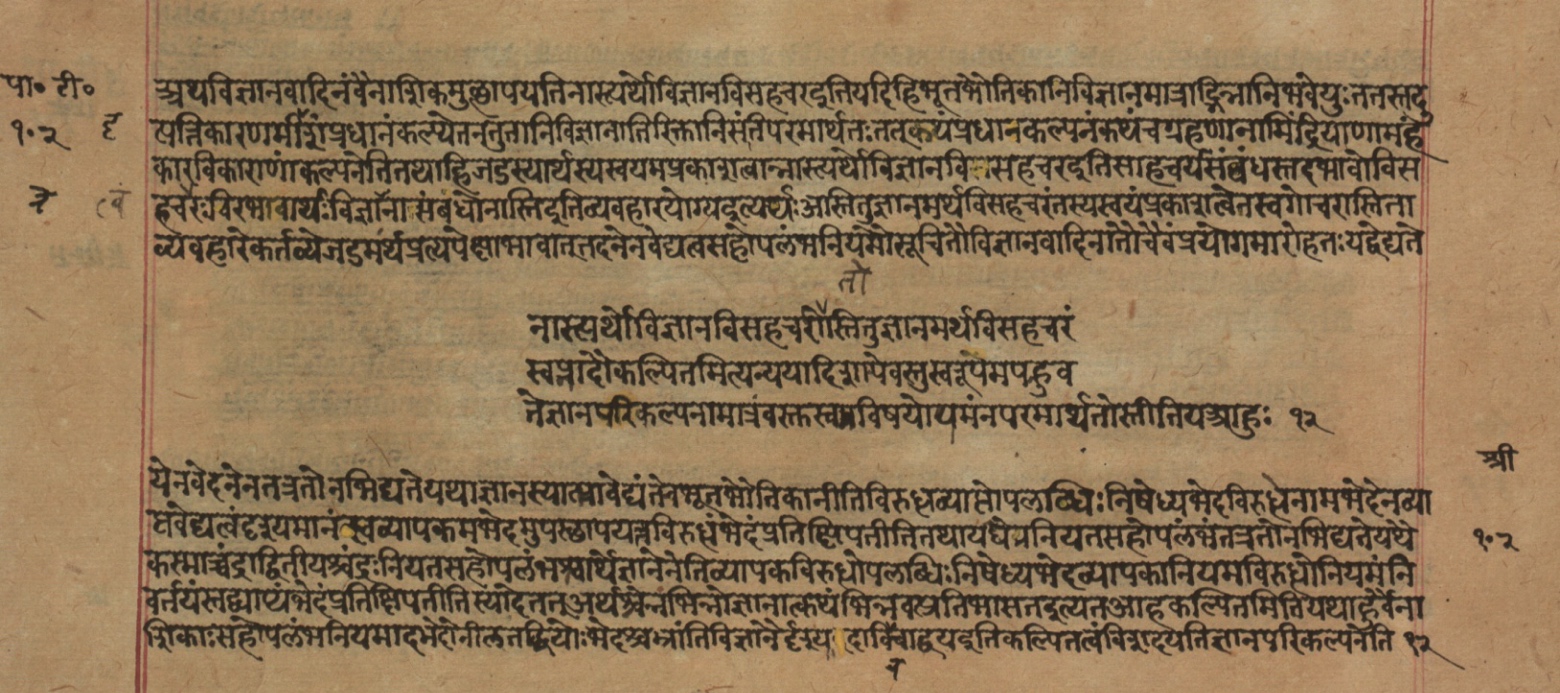 पा॰ टी॰
१॰२
अथविज्ञानवादिनंवैनाशिकमुत्थापयतिनास्त्यर्थोविज्ञानविसहचरइतियदिहिभूतभौतिकानिविज्ञानमात्राद्भिन्नानिभवेयुःततस्तदु
त्पत्तिकारणमीदृशंप्रधानंकल्प्येतनतुतानिविज्ञानातिरिक्तानिसंतिपरमार्थतःतत्कथंप्रधानकल्पनंकथंचग्रहणानामिंद्रियाणामहं
कारविकाराणांकल्पनेतितथाहिजडस्यार्थस्यस्वयमप्रकाशत्वान्नास्त्यर्थोविज्ञानविसहचरइतिसाहचर्यंसंबंधस्तदभावोविस
हचरःविरभावार्थःविज्ञानासंबंधोनास्तिइतिव्यवहारयोग्यइत्यर्थःअस्तितुज्ञानमर्थविसहचरंतस्यस्वयंप्रकाशत्वेनस्वगोचरास्तिता
व्यवहारेकर्तव्येजडमर्थप्रत्यपेक्षाभावात्तदनेनवेद्यत्वसहोपलंभनियमौसूचितौविज्ञानवादिनातौचैवंप्रयोगमारोहतःयद्वेद्यते
तो
नास्त्यर्थोविज्ञानविसहचरोस्तितुज्ञानमर्थविसहचरं
स्वप्नादौकल्पितमित्यन्ययादिशायेवस्तुस्वरूपमपह्नुव
तेज्ञानपरिकल्पनामात्रंवस्तुस्वप्नविषयोपमंनपरमार्थतोस्तीतियआहुः १२
श्री
येनवेदनेनतत्ततोनभिद्यतेयथाज्ञानस्यात्मावेद्यंतेचभूतभौतिकानीतिविरुद्धव्याप्तोपलब्धिःनिषेध्यभेदविरुद्धेनामभेदेनव्या
प्तंवेद्यत्वंदृश्यमानंस्वव्यापकमभेदमुपस्थापयत्तद्विरुद्धंभेदंप्रतिक्षिपतीतितथायद्येननियतसहोपलंभंतत्ततोनभिद्यतेयथै
कस्माच्चंद्राद्द्वितीयश्चंद्रःनियतसहोपलंभश्चार्थोज्ञानेनेतिव्यापकविरुद्धोपलब्धिःनिषेध्यभेदव्यापकानियमविरुद्धोनियमंनि
वर्तयंस्तद्व्याप्यंभेदंप्रतिक्षिपतीतिस्यादेतत्अर्थश्चेन्नभिन्नोज्ञानात्कथंभिन्नवत्प्रतिभासतइत्यतआहकल्पितमितियथाहुर्वैना
शिकाःसहोपलंभनियमादभेदोनीलतद्धियोःभेदश्चभ्रांतिविज्ञानैर्दृश्यदाविवाद्वयइतिकल्पितत्वंविशदयतिज्ञानपरिकल्पनेति १२
१॰२